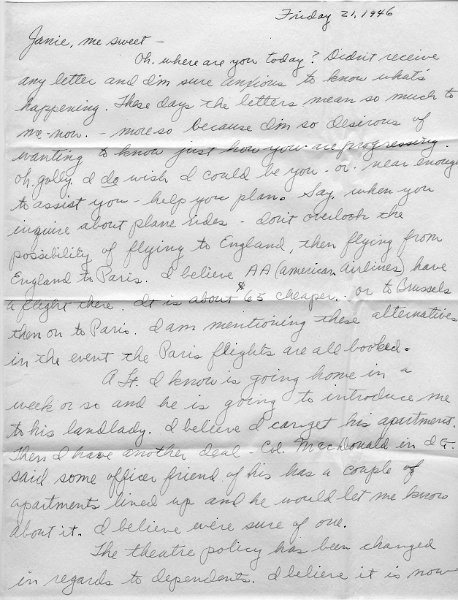 Friday 21, 1946
Janie, me sweet -
Oh, where are you today? Didn't receive
any letter and I'm sure anxious to know what's
happening. These days the letters mean so much to
me now. - more so because I'm so desirous of
wanting to know just how you are progressing.
Oh, golly I do wish I could be you - or near enough
to assist you - help you plan. Say, when you
inquire about plane rides - don't overlook the
possibility of flying to England, then flying from
England to Paris. I believe AA (American Airlines) have
a flight there. It is about $65 cheaper. or to Brussels
then on to Paris. I am mentioning these alternatives
in the event the Paris flights are all booked.
A Lt. I know is going home in a
week or so and he is going to introduce me
to his landlady. I believe I can get his apartment.
Then I have another deal - Col. MacDonald in I.G.
said some officer friend of his has a couple of
apartments lined up and he would let me know
about it. I believe we're sure of one.
The theatre policy has been changed
in regards to dependents. I believe it is now